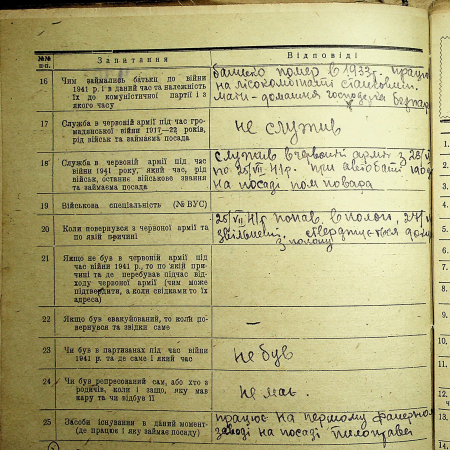 №№ п-п.
Запитання
Відповіді
16
Чим займались батьки до війни
1941 р. і в даний час та належність
їх до комуністичної партії і з
якого часу
батько помер в 1933 г. працює
на лісокомбінаті
мати - домашня господарка
17
Служба в червоній армії час гро-
мадянської війни 1917—22 років,
рід військ та займаєма посада
не служив
18
Служба в червоній армії під час
війни 1941 року, який час, рід
військ, останнє військове звання
та займаєма посада
служив в червоній армії з
по 25/VII 41 р. при
на посаді пом повара
19
Військова спеціальність (№ ВУС)
20
Коли повернувся з червоної армії та
по якій причині
25/VII 41 р попав в полон,
звільнений. стверджується
з полону
21
Якщо не був в червоній армії під
час війни 1941 р., то по якій при-
чині та де перебував підчас від-
ходу червоної армії (чим може
підтвердити, а коли свідками то їх
адреса)
22
Якщо був евакуйований, то коли по-
вернувся та звідки саме
—
23
Чи був в партизанах під час війни
1941 р. та де саме і який час
не був
24
Чи був репресований сам, або хто з
родичів, коли і защо, яку мав
кару та чи відбув її
не мав.
25
Засоби існування в даний момент
(де працює і яку займає посаду)
працює на першому фанерном
заводі на посаді